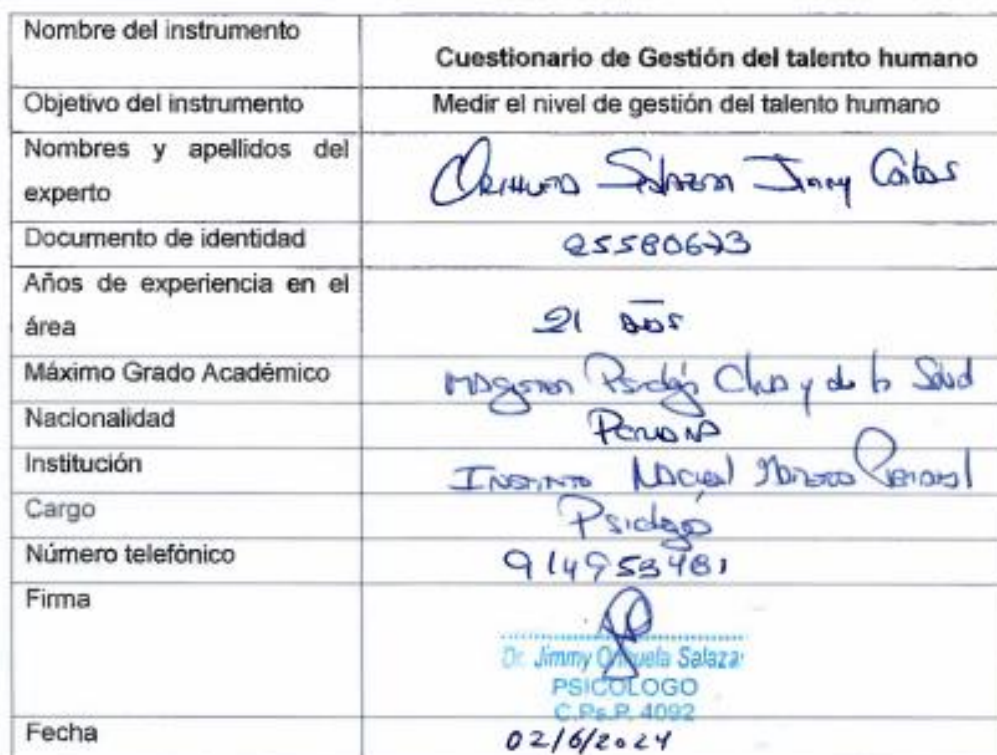 Nombre del instrumento
Cuestionario de Gestión del talento humano
Objetivo del instrumento
Medir el nivel de gestión del talento humano
Nombres y apellidos del
experto
Orihuela Salazar Jimmy Carlos
Documento de identidad
25580673
Años de experiencia en el
área
21 años
Máximo Grado Académico
Magister Psicología y de la Salud
Nacionalidad
Peruana
Institución
Instituto Nacional
Cargo
Psicólogo
Número telefónico
Firma
Dr. Jimmy Orihuela Salazar
PSICOLOGO
C.Ps.P. 4092
Fecha
02/6/2024